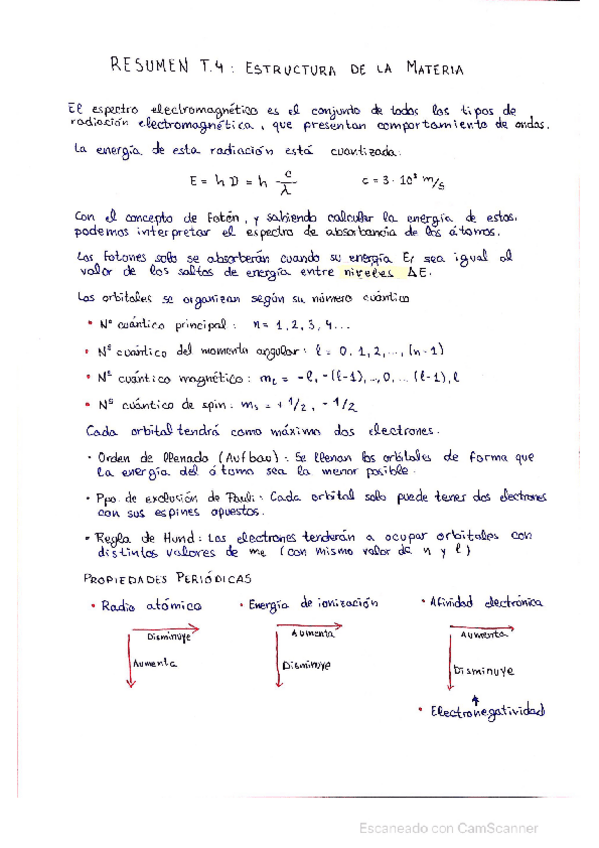 RESUMEN T.4: ESTRUCTURA DE LA MATERIA
El espectro electromagnético es el conjunto de todos los tipos de
radiación electromagnética, que presentan comportamiento de ondas.
La energía de esta radiación está cuantizada.
E = h ν = h · c/λ c = 3 · 10⁸ m/s
Con el concepto de fotón, y sabiendo calcular la energía de estos,
podemos interpretar el espectro de absorbancia de los átomos.
Los fotones solo se absorberán cuando su energía Ef sea igual al
valor de los saltos de energía entre niveles ΔE.
Los orbitales se organizan según su número cuántico
• Nº cuántico principal: n = 1, 2, 3, 4...
• Nº cuántico del momento angular: l = 0, 1, 2, ..., (n-1)
• Nº cuántico magnético: ml = -l, -(l-1), .., 0, ... (l-1), l
• Nº cuántico de spin: ms = + 1/2, - 1/2
Cada orbital tendrá como máximo dos electrones.
• Orden de llenado (Aufbau): Se llenan los orbitales de forma que
la energía del átomo sea la menor posible.
• Ppo. de exclusión de Pauli: Cada orbital solo puede tener dos electrones
con sus espines opuestos.
• Regla de Hund: Los electrones tenderán a ocupar orbitales con
distintos valores de ml (con mismo valor de n y l)
PROPIEDADES PERIÓDICAS
• Radio atómico • Energía de ionización • Afinidad electrónica
Disminuye Aumenta Aumenta
Aumenta Disminuye Disminuye
• Electronegatividad
Escaneado con CamScanner